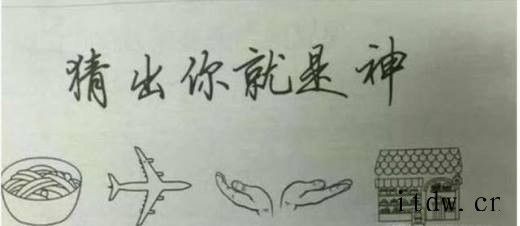 猜出你就是神
itdw.cr